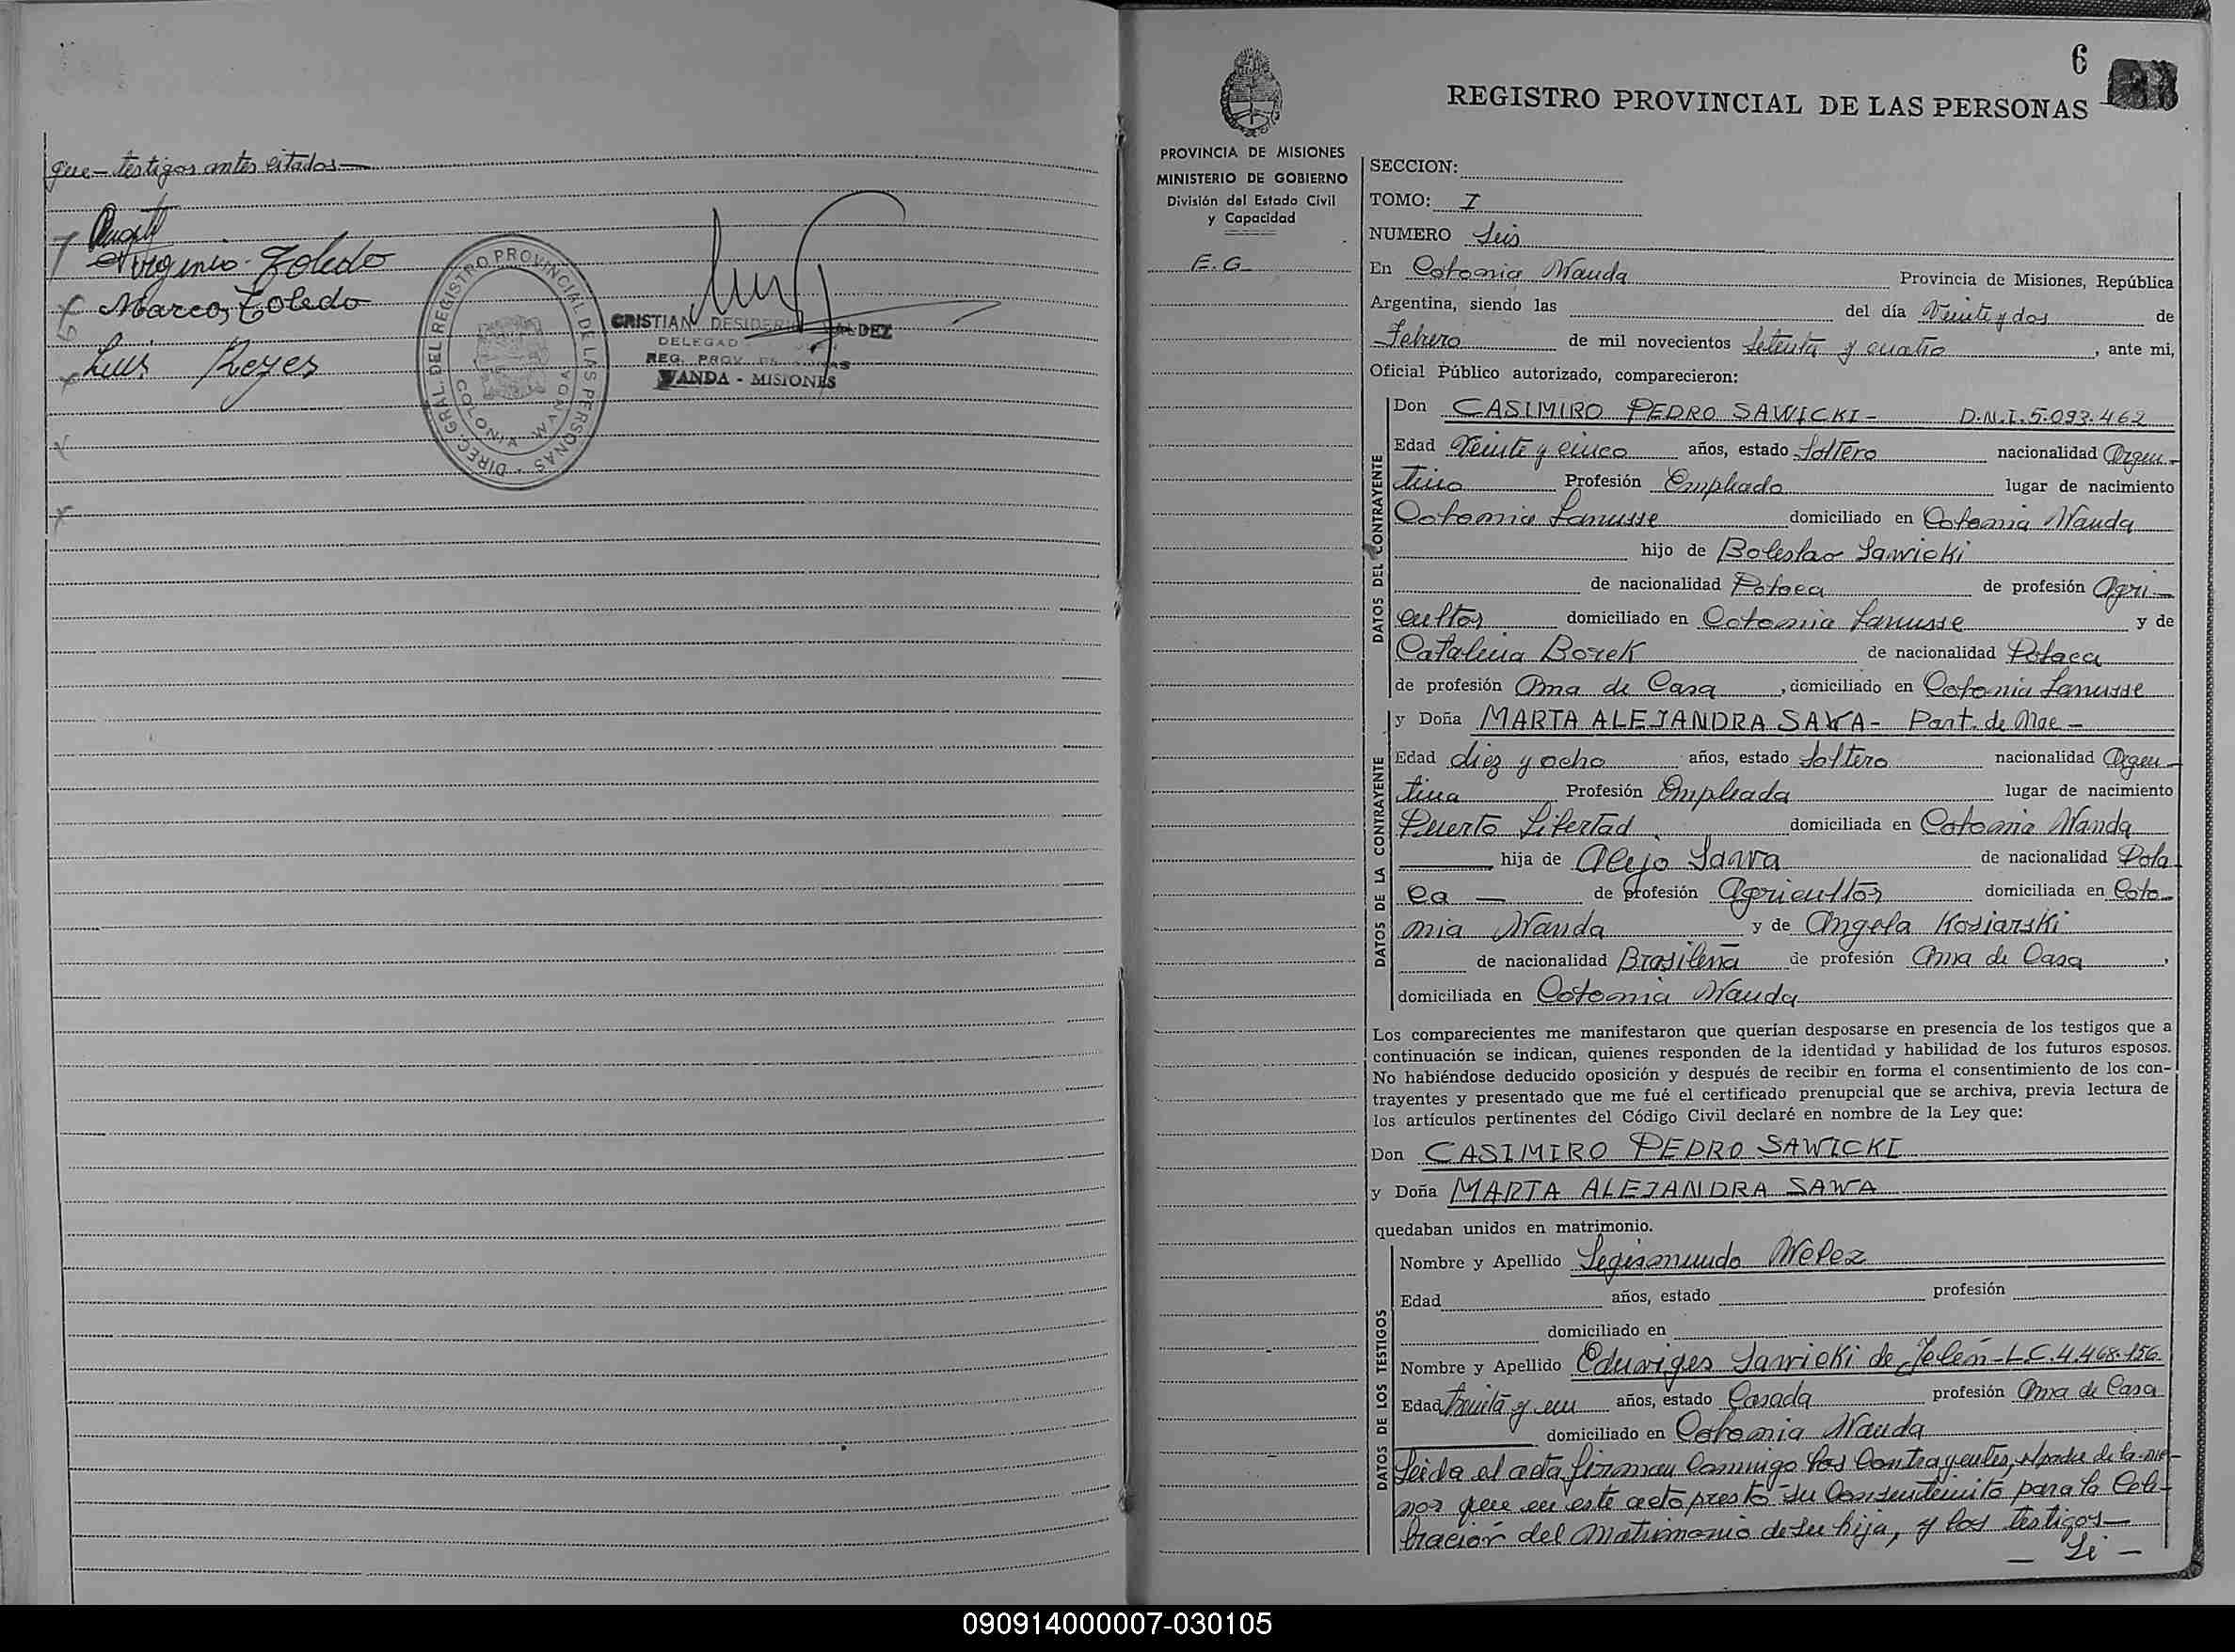 que - testigos antes citados -
Virginio Toledo
Marcos Toledo
Luis Reyes
DIREC. GRAL. DEL REGISTRO PROVINCIAL DE LAS PERSONAS
COLONIA WANDA
CRISTIAN DESIDERIO
DELEGAD
REG. PROV.
WANDA - MISIONES
6
REGISTRO PROVINCIAL DE LAS PERSONAS
PROVINCIA DE MISIONES
MINISTERIO DE GOBIERNO
División del Estado Civil
y Capacidad
E.G
SECCION:
TOMO: I
NUMERO Seis
En Colonia Wanda Provincia de Misiones, República
Argentina, siendo las del día Veinte y dos de
Febrero de mil novecientos Setenta y cuatro, ante mi,
Oficial Público autorizado, comparecieron:
DATOS DEL CONTRAYENTE
Don CASIMIRO PEDRO SAWICKI - D.N.I. 5.093.462
Edad Veinte y cinco años, estado Soltero nacionalidad Argen-
tino Profesión Empleado lugar de nacimiento
Colonia Lanusse domiciliado en Colonia Wanda
hijo de Boleslao Sawicki
de nacionalidad Polaca de profesión Agri-
cultor domiciliado en Colonia Lanusse y de
Catalina Borek de nacionalidad Polaca
de profesión Ama de Casa, domiciliado en Colonia Lanusse
DATOS DE LA CONTRAYENTE
y Doña MARTA ALEJANDRA SAWA - Part. de Nac -
Edad diez y ocho años, estado Soltero nacionalidad Argen-
tina Profesión Empleada lugar de nacimiento
Puerto Libertad domiciliada en Colonia Wanda
hija de Alejo Sawa de nacionalidad Pola-
ca - de profesión Agricultor domiciliada en Colo-
nia Wanda y de Angela Kosiarski
de nacionalidad Brasileña de profesión Ama de Casa,
domiciliada en Colonia Wanda
Los comparecientes me manifestaron que querían desposarse en presencia de los testigos que a
continuación se indican, quienes responden de la identidad y habilidad de los futuros esposos.
No habiéndose deducido oposición y después de recibir en forma el consentimiento de los con-
trayentes y presentado que me fué el certificado prenupcial que se archiva, previa lectura de
los artículos pertinentes del Código Civil declaré en nombre de la Ley que:
Don CASIMIRO PEDRO SAWICKI
y Doña MARTA ALEJANDRA SAWA
quedaban unidos en matrimonio.
DATOS DE LOS TESTIGOS
Nombre y Apellido Segismundo Welez
Edad años, estado profesión
domiciliado en
Nombre y Apellido Eduviges Sawicki de Jeleń - L.C. 4.468.156
Edad treinta y un años, estado Casada profesión Ama de Casa
domiciliado en Colonia Wanda
Leida el acta firman conmigo los Contrayentes, el padre de la me-
nor que en este acto prestó su consentimiento para la Cele-
bración del Matrimonio de su hija, y los testigos -
- Si -
090914000007-030105